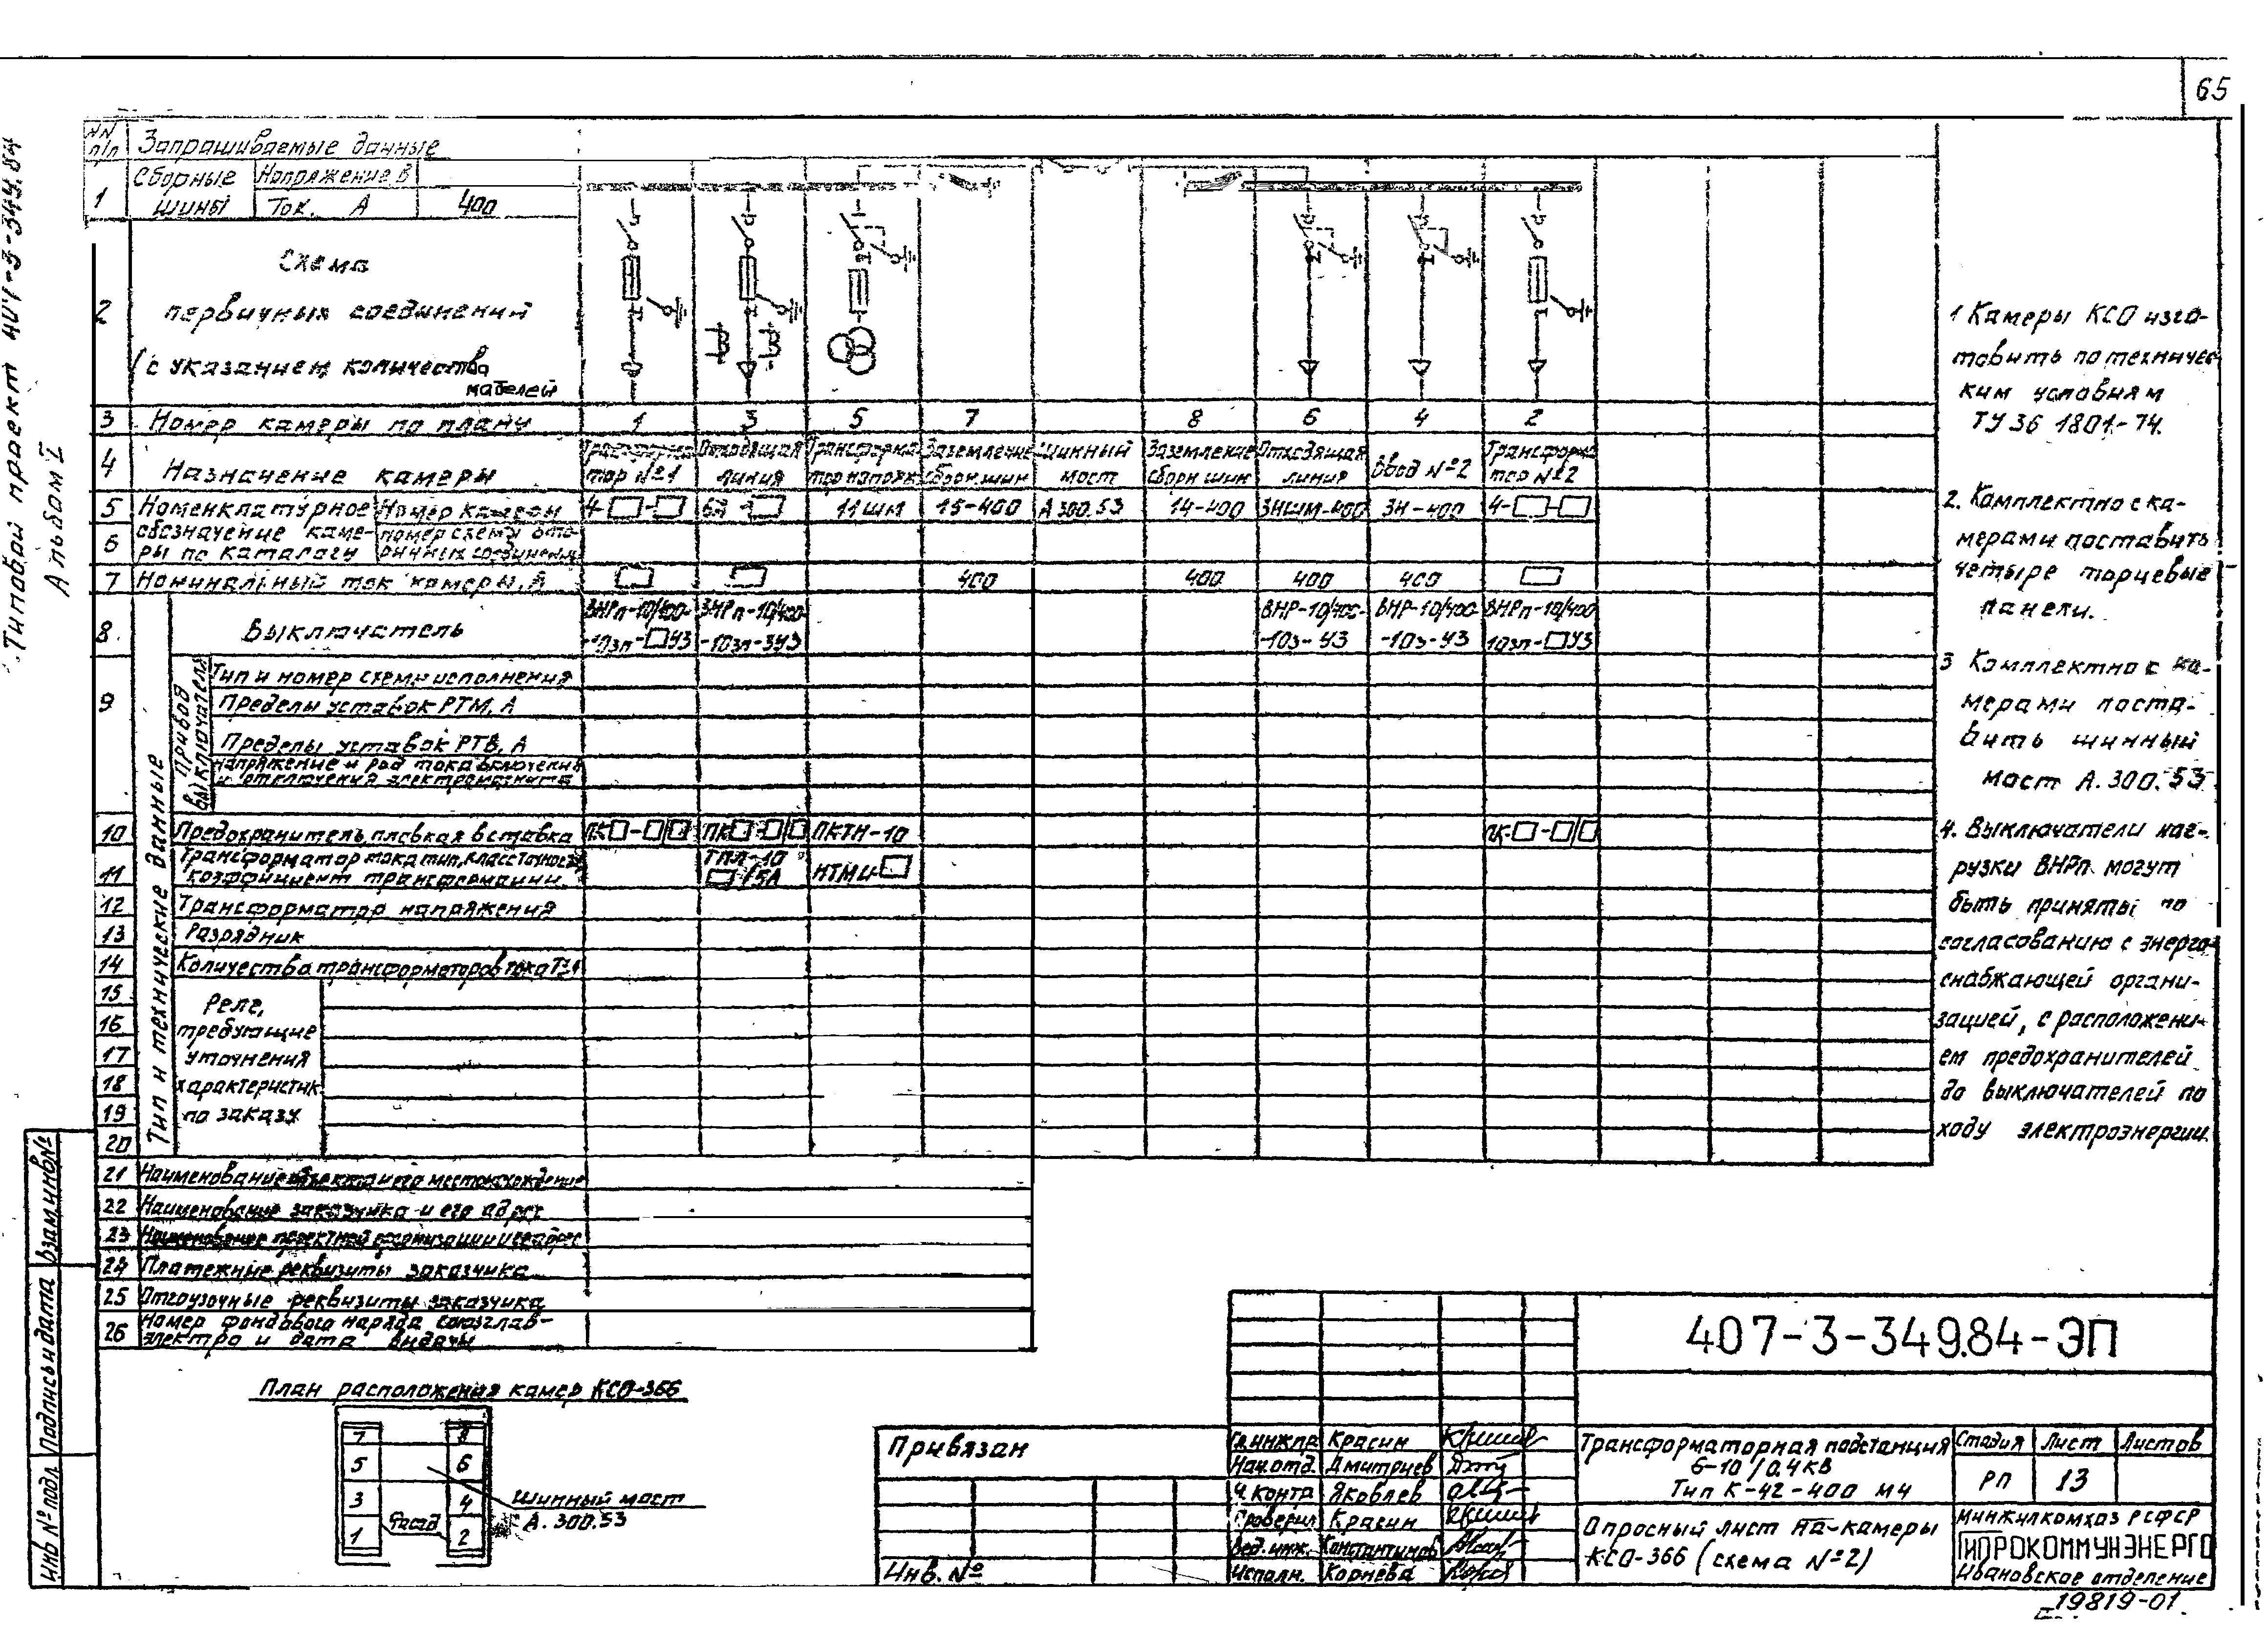 65
Типовой проект 407-3-349.84
Альбом V
NN п/п
Запрашиваемые данные
1
Сборные шины
Напряжение В
Ток. А
400
2
Схема
первичных соединений
(с указанием количества
кабелей
3 Номер камеры по плану 1 3 5 7 8 6 4 2
4 Назначение камеры
Трансформатор №1
Отходящая линия
Трансформатор напряж
Заземление сборн. шин
Шинный мост
Заземление сборн шин
Отходящая линия
Ввод №2
Трансформатор №2
5 Номенклатурное Номер камеры 4-□-□ □ 11шм 15-400 А300.53 14-400 3Ншм-400 3Н-400 4-□-□
6 обозначение камеры по каталогу номер схемы вторичных соединений
7 Номинальный ток камеры, А □ □ 400 400 400 400 □
8. Выключатель
ВНРп-10/400-
-10зп-□У3
ВНРп-10/400
-10зп-3У3
ВНР-10/400-
-10з-У3
ВНР-10/400-
-10з-У3
ВНРп-10/400
10зп-□У3
9
Привод выключателя
Тип и номер схемы исполнения
Пределы уставок РТМ, А
Пределы уставок РТВ, А
напряжение и род тока включения
и отключения электромагнита
Тип и технические данные
10 Предохранитель, плавкая вставка ПК□-□/□ ПК□-□/□ ПКТН-10 ПК-□-□/□
11 Трансформатор тока тип, класс точности,
коэффициент трансформации.
ТПЛ-10
□/5А
НТМИ-□
12 Трансформатор напряжения
13 Разрядник
14 Количества трансформаторов тока
15
16
17
18
19
20
Реле,
требующие
уточнения
характеристик
по заказу
21 Наименование объекта и его местонахождение
22 Наименование заказчика и его адрес
23 Наименование проектной организации и ее адрес
24 Платежные реквизиты заказчика
25 Отгрузочные реквизиты заказчика
26 Номер фондового наряда союзглав-
электро и дата выдачи
1 Камеры КСО изго-
товить по техничес
ким условиям
ТУ 36 1801-74.
2. Комплектно с ка-
мерами поставить
четыре торцевые
панели.
3 Комплектно с ка-
мерами поста-
вить шинный
мост А.300.53
4. Выключатели наг-
рузки ВНРп могут
быть приняты по
согласованию с энерго-
снабжающей органи-
зацией, с расположени-
ем предохранителей
до выключателей по
ходу электроэнергии.
План расположения камер КСО-366
7 8
5 6
3 4
1 Фасад 2
Шинный мост
А. 300.53
Взам.инв№
Подпись и дата
Инв № подл
Привязан
Инв. №
407-3-349.84-ЭП
Гл.инж.пр. Красин
Нач.отд. Дмитриев
Н.контр Яковлев
Проверил Красин
Вед.инж. Константинов
Исполн. Корнева
Трансформаторная подстанция
6-10/0.4 кВ
Тип К-42-400 М4
Стадия Лист Листов
РП 13
Опросный лист на камеры
КСО-366 (схема №2)
Минжилкомхоз РСФСР
ГИПРОКОММУНЭНЕРГО
Ивановское отделение
19819-01